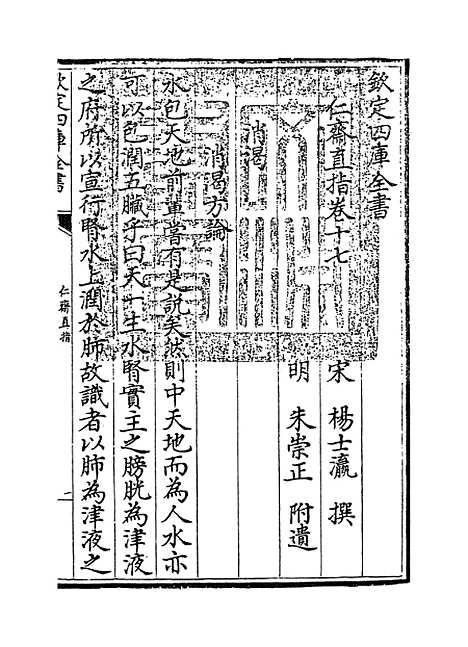 欽定四庫全書
仁齋直指卷十七
宋 楊士瀛 撰
明 朱崇正 附遺
消渴
消渴方論
水包天地前輩嘗有是說矣然則中天地而為人水亦
可以包潤五臟乎曰天一生水腎實主之膀胱為津液
之府所以宣行腎水上潤於肺故識者以肺為津液之
欽定四庫全書
仁齋直指
一